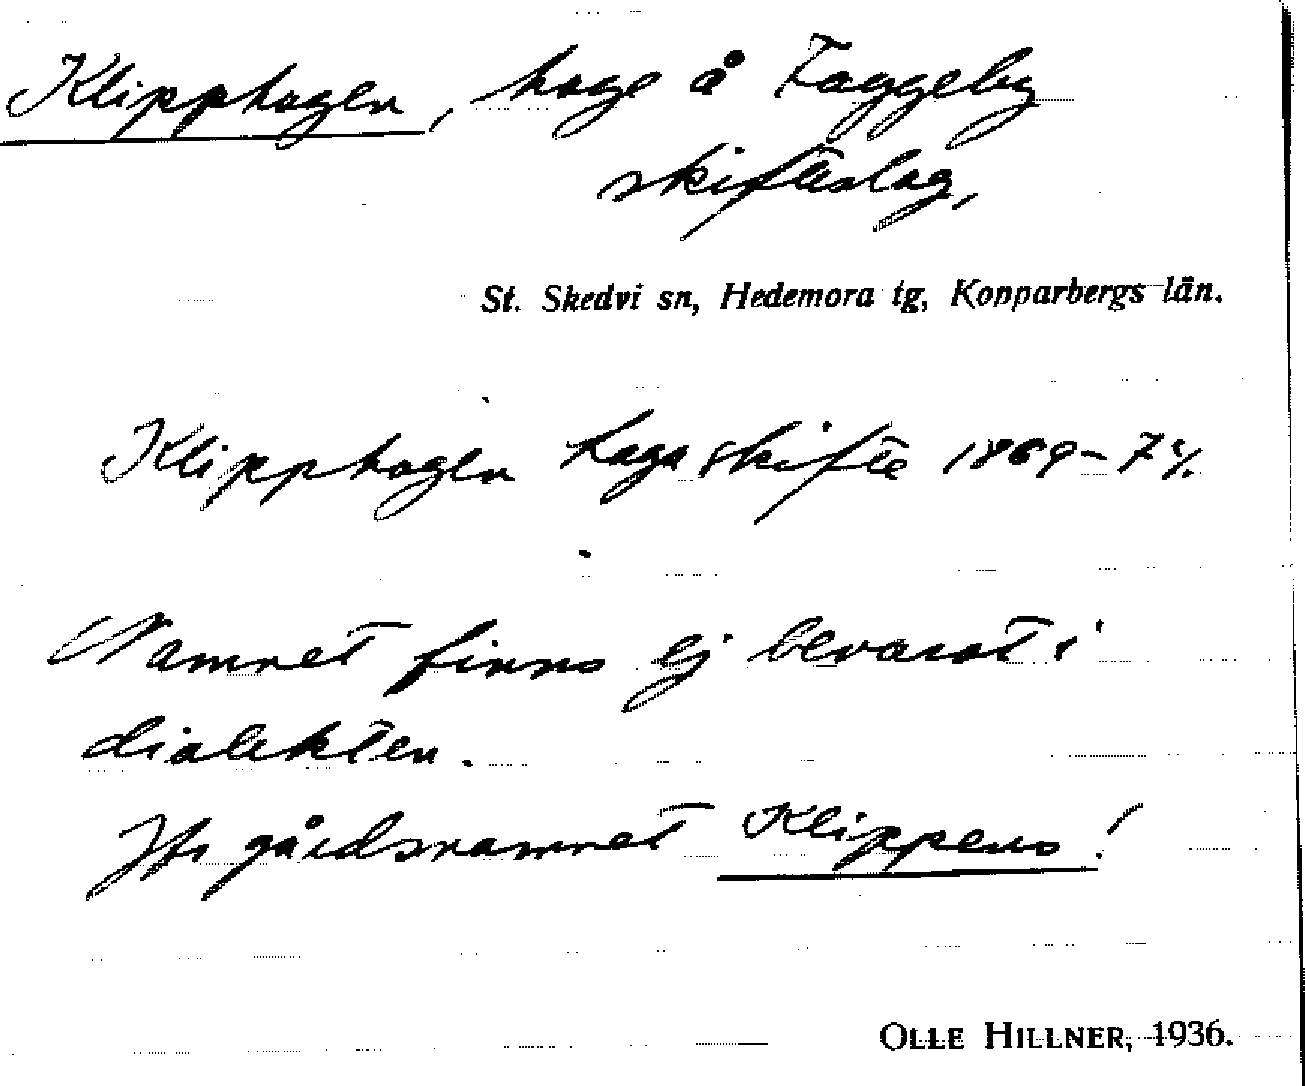 Klipphagen, hage å Faggeby
skifteslag,
St. Skedvi sn, Hedemora tg, Kopparbergs län.
Klipphagen hagaskifte 1869-74.
Namnet finns ej bevarat i
dialekten.
Jfr gårdsnamnet Klippens!
OLLE HILLNER, 1936.